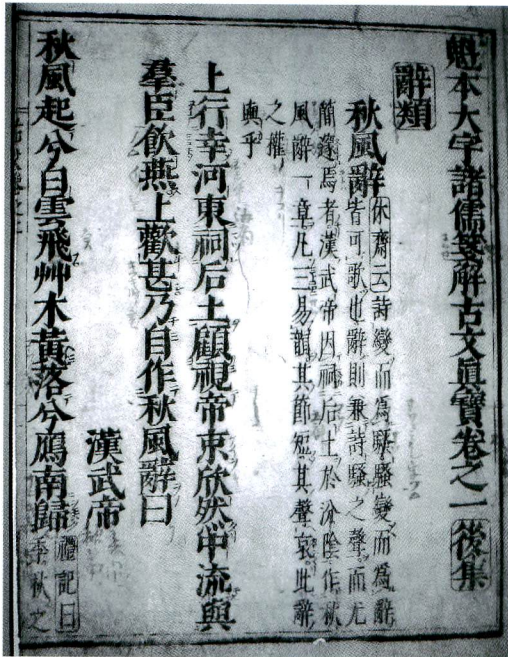 魁本大字諸儒箋解古文眞寶卷之一後集
辭類
秋風辭
休齋云詩變而爲騷騷變而爲辭
皆可歌也辭則兼詩騷之聲而尤
簡邃焉者漢武帝因祠后土於汾陰作秋
風辭一章凡三易韻其節短其聲哀此辭
之權輿乎
漢武帝
上行幸河東祠后土顧視帝京欣然中流與
羣臣飮燕上歡甚乃自作秋風辭曰
秋風起兮白雲飛艸木黃落兮鴈南歸
禮記曰
季秋之